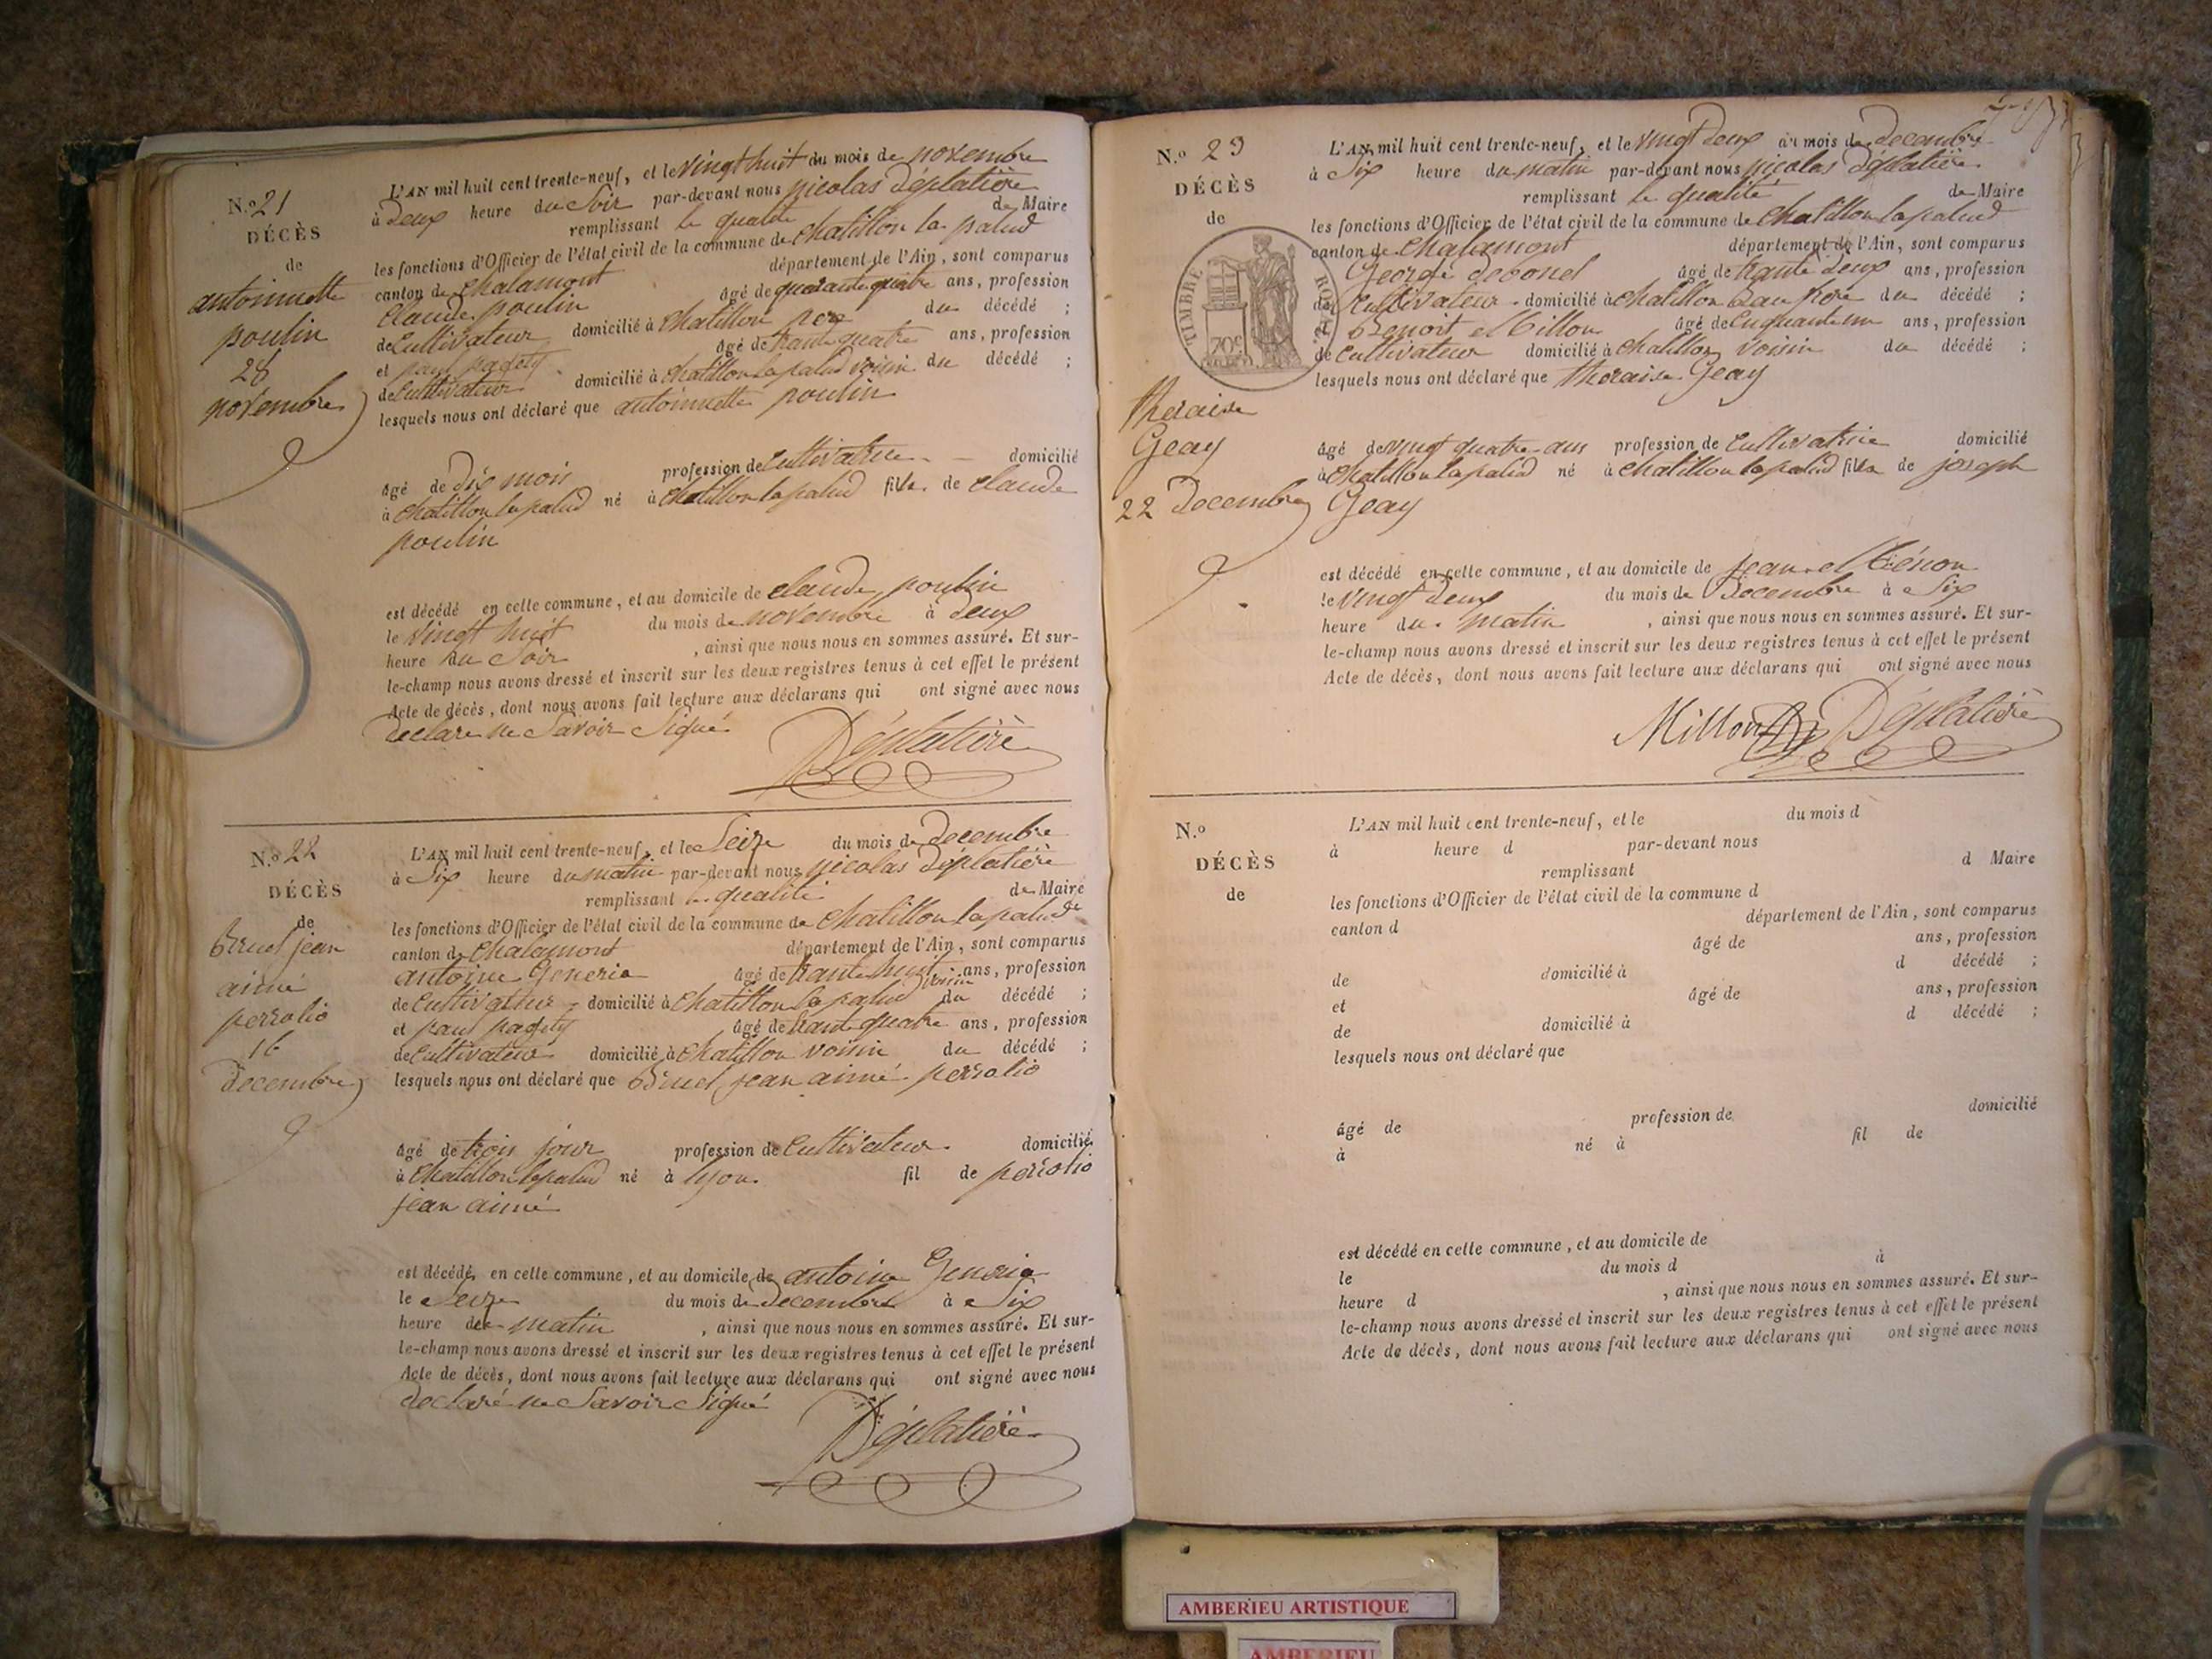 N.o 21
DÉCÈS
de
antoinette
poulin
28
novembre
L'AN mil huit cent trente-neuf, et le vingt huit du mois de novembre
à deux heure du Soir par-devant nous nicolas Déplatière
remplissant le qualité de Maire
les fonctions d'Officier de l'état civil de la commune de chatillon la palud
canton de chalamont département de l'Ain, sont comparus
Claude poulin âgé de quarante quatre ans, profession
de Cultivateur domicilié à chatillon pere du décédé ;
et paul pagety âgé de trante quatre ans, profession
de Cultivateur domicilié à chatillon la palud voisin du décédé ;
lesquels nous ont déclaré que antoinette poulin
âgé de dix mois profession de Cultivatrice domicilié
à chatillon la palud né à chatillon la palud fille de claude
poulin
est décédé en cette commune, et au domicile de claude poulin
le vingt huit du mois de novembre à deux
heure du Soir , ainsi que nous nous en sommes assuré. Et sur-
le-champ nous avons dressé et inscrit sur les deux registres tenus à cet effet le présent
Acte de décès, dont nous avons fait lecture aux déclarans qui ont signé avec nous
declare ne Savoir Signé
Déplatière
N.o 22
DÉCÈS
de
Bruel jean
aimé
perrolio
16
decembre
L'AN mil huit cent trente-neuf, et le Seize du mois de decembre
à Six heure du matin par-devant nous nicolas Déplatière
remplissant le qualité de Maire
les fonctions d'Officier de l'état civil de la commune de chatillon la palud
canton de chalamont département de l'Ain, sont comparus
antoine Generia âgé de trante huit ans, profession
de Cultivateur domicilié à chatillon la palud voisin du décédé ;
et paul pagety âgé de trante quatre ans, profession
de Cultivateur domicilié à chatillon voisin du décédé ;
lesquels nous ont déclaré que Bruel jean aimé perrolio
âgé de trois jour profession de Cultivateur domicilié
à chatillon la palud né à lyon fil de perrolio
jean aimé
est décédé en cette commune, et au domicile de antoine Generia
le Seize du mois de decembre à Six
heure du matin , ainsi que nous nous en sommes assuré. Et sur-
le-champ nous avons dressé et inscrit sur les deux registres tenus à cet effet le présent
Acte de décès, dont nous avons fait lecture aux déclarans qui ont signé avec nous
declaré ne Savoir Signé
Déplatière
N.o 23
DÉCÈS
de
TIMBRE ROYAL
70c
theraise
Geay
22 Decembre
L'AN mil huit cent trente-neuf, et le vingt Deux du mois de Decembre
à Six heure du matin par-devant nous nicolas Déplatière
remplissant le qualité de Maire
les fonctions d'Officier de l'état civil de la commune de chatillon la palud
canton de chalamont département de l'Ain, sont comparus
George debonel âgé de trante deux ans, profession
de Cultivateur domicilié à chatillon Beau frere du décédé ;
et Benoit Millon âgé de Cinquante un ans, profession
de Cultivateur domicilié à chatillon voisin du décédé ;
lesquels nous ont déclaré que theraise Geay
âgé de vingt quatre ans profession de Cultivatrice domicilié
à chatillon la palud né à chatillon la palud fille de joseph
Geay
est décédé en cette commune, et au domicile de jean
le vingt deux du mois de Decembre à Six
heure du matin , ainsi que nous nous en sommes assuré. Et sur-
le-champ nous avons dressé et inscrit sur les deux registres tenus à cet effet le présent
Acte de décès, dont nous avons fait lecture aux déclarans qui ont signé avec nous
Millon Déplatière
N.o
DÉCÈS
de
L'AN mil huit cent trente-neuf, et le du mois d
à heure d par-devant nous
remplissant d Maire
les fonctions d'Officier de l'état civil de la commune d
canton d département de l'Ain, sont comparus
âgé de ans, profession
de domicilié à d décédé ;
et âgé de ans, profession
de domicilié à d décédé ;
lesquels nous ont déclaré que
âgé de profession de domicilié
à né à fil de
est décédé en cette commune, et au domicile de
le du mois d à
heure d , ainsi que nous nous en sommes assuré. Et sur-
le-champ nous avons dressé et inscrit sur les deux registres tenus à cet effet le présent
Acte de décès, dont nous avons fait lecture aux déclarans qui ont signé avec nous
AMBERIEU ARTISTIQUE
AMBERIEU